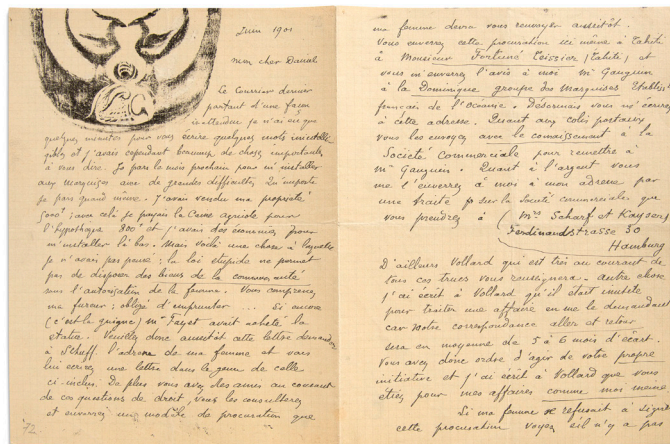 Juin 1901
mon cher Daniel
Le Courrier dernier
partant d'une façon
inattendue je n'ai eu que
quelques minutes pour vous écrire quelques mots inintelli
gibles et j'avais cependant beaucoup de choses importantes
à vous dire. Je pars le mois prochain pour m'installer
aux Marquises avec de grandes difficultés. Qu'importe
je pars quand même. J'avais vendu ma propriété
5000f avec cela je payais la Caisse agricole pour
l'hypothèque 800f et j'avais des économies pour
m'installer là bas. Mais voilà une chose à laquelle
je n'avais pas pensé : la loi stupide ne permet
pas de disposer des biens de la communauté
sans l'autorisation de la femme. Vous comprenez
ma fureur : obligé d'emprunter ... Si encore
(c'est la guigne) Mr Fayet avait acheté la
statue. Veuillez donc aussitôt cette lettre demander
à Schuff. l'adresse de ma femme et vous
lui écrirez une lettre dans le genre de celle
ci-inclus. De plus vous avez des amis au courant
de ces questions de droit, vous les consulterez
et enverrez un modèle de procuration que
72
ma femme devra vous renvoyer aussitôt.
Vous enverrez cette procuration ici même à Tahiti
à Monsieur Fortuné Teissier (Tahiti) et
vous m'enverrez l'avis à moi Mr Gauguin
à la Dominique groupe des Marquises Etabliss
français de l'Océanie. Désormais vous m'écrirez
à cette adresse. Quant aux colis postaux
vous les envoyez avec le connaissement à la
Société Commerciale pour remettre à
Mr Gauguin. Quant à l'argent vous
me l'enverrez à moi à mon adresse par
une traite sur la Société commerciale que
vous prendrez à Mrs Scharf et Kayser
Ferdinandstrasse 30
Hamburg
D'ailleurs Vollard qui est très au courant de
tous ces trucs vous renseignera. Autre chose
j'ai écrit à Vollard qu'il était inutile
pour traiter une affaire en me le demandant
car notre correspondance aller et retour
sera en moyenne de 5 à 6 mois d'écart.
Vous avez donc ordre d'agir de votre propre
initiative et j'ai écrit à Vollard que vous
étiez pour mes affaires comme moi même
Si ma femme se refusait à signer
cette procuration voyez s'il n'y a pas